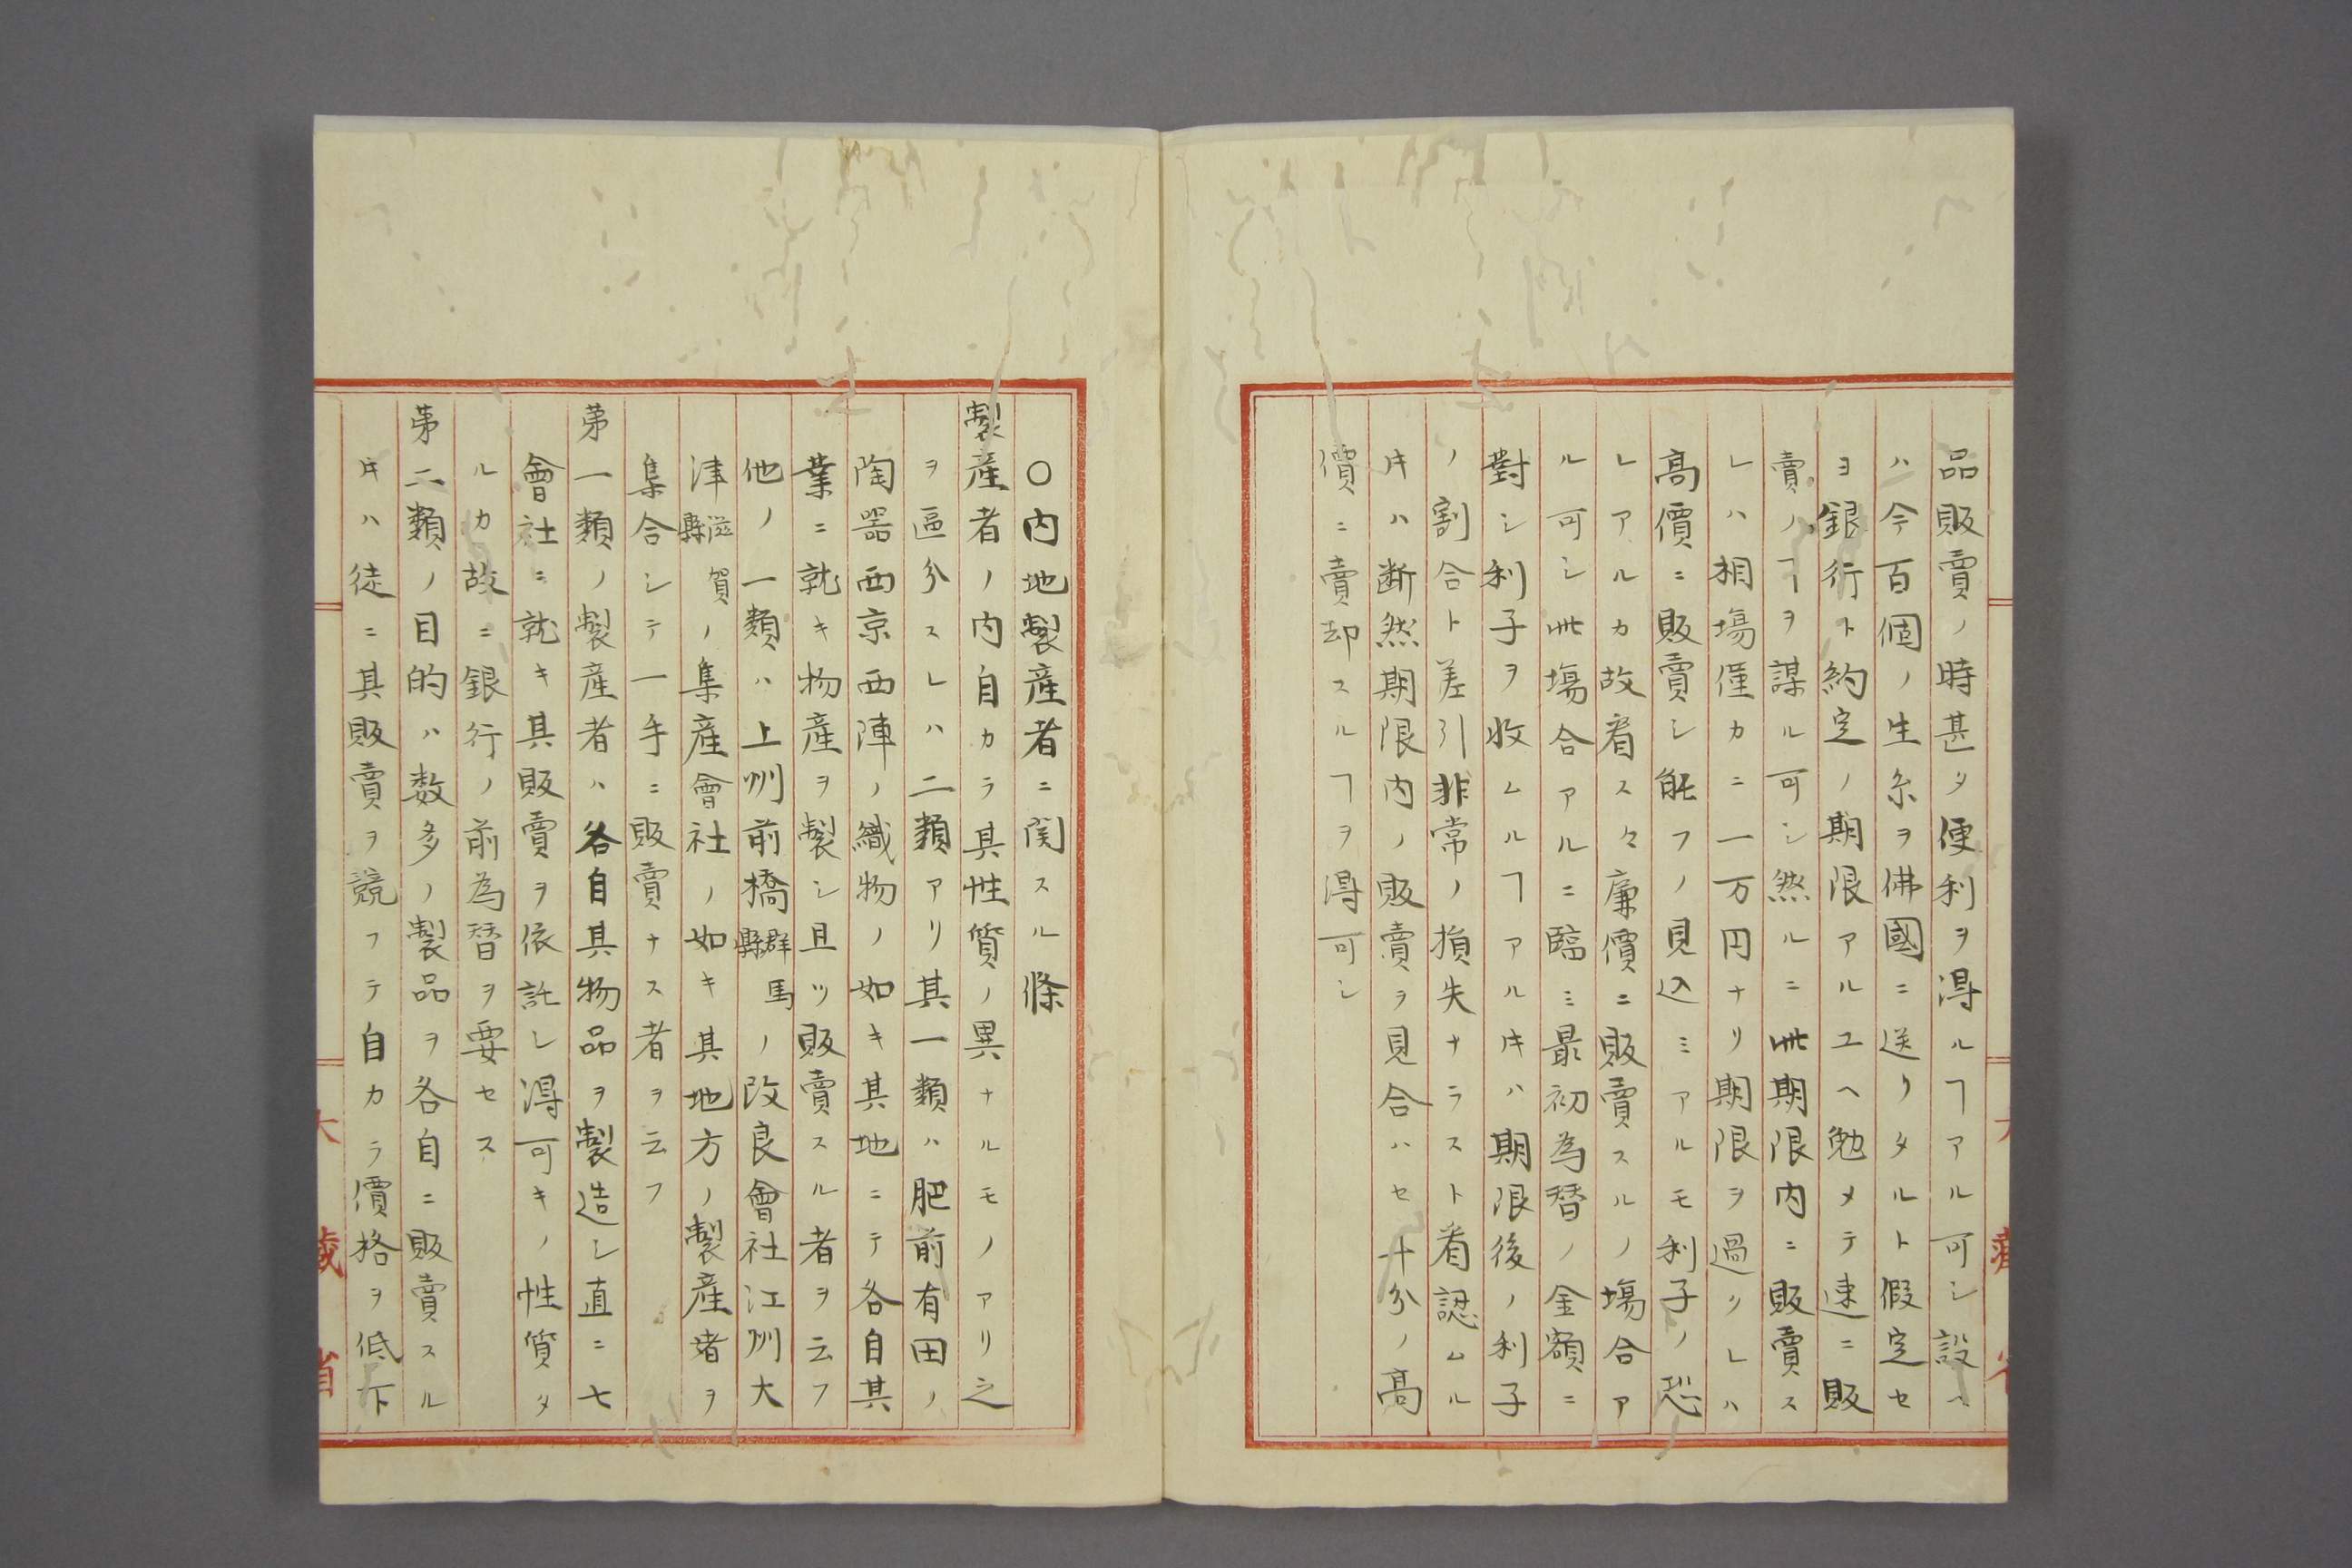 品販賣ノ時甚タ便利ヲ得ルヿアル可シ設ヘ
ハ今百個ノ生糸ヲ佛國ニ送リタルト假定セ
ヨ銀行ト約定ノ期限アルユヘ勉メテ速ニ販
賣ノヿヲ謀ル可シ然ルニ此期限内ニ販賣ス
レハ相塲僅カニ一万円ナリ期限ヲ過クレハ
高價ニ販賣シ能フノ見込ミアルモ利子ノ恐
レアルカ故着ス々廉價ニ販賣スルノ塲合ア
ル可シ此塲合アルニ臨ミ最初為替ノ金額ニ
對シ利子ヲ收ムルヿアルキハ期限後ノ利子
ノ割合ト差引非常ノ損失ナラスト看認ムル
キハ断然期限内ノ販賣ヲ見合ハセ十分ノ高
價ニ賣却スルヿヲ得可シ
〇内地製産者ニ関スル條
製産者ノ内自カラ其性質ノ異ナルモノアリ之
ヲ區分スレハ二類アリ其一類ハ肥前有田ノ
陶器西京西陣ノ織物ノ如キ其地ニテ各自其
業ニ就キ物産ヲ製シ且ツ販賣スル者ヲ云フ
他ノ一類ハ上州前橋群馬縣ノ改良會社江州大
津滋賀縣ノ集産會社ノ如キ其地方ノ製産者ヲ
集合シテ一手ニ販賣ナス者ヲ云フ
第一類ノ製産者ハ各自其物品ヲ製造シ直ニ七
會社ニ就キ其販賣ヲ依託シ得可キノ性質タ
ルカ故ニ銀行ノ前為替ヲ要セス
第二類ノ目的ハ数多ノ製品ヲ各自ニ販賣スル
キハ徒ニ其販賣ヲ競フテ自カラ價格ヲ低下
大藏省